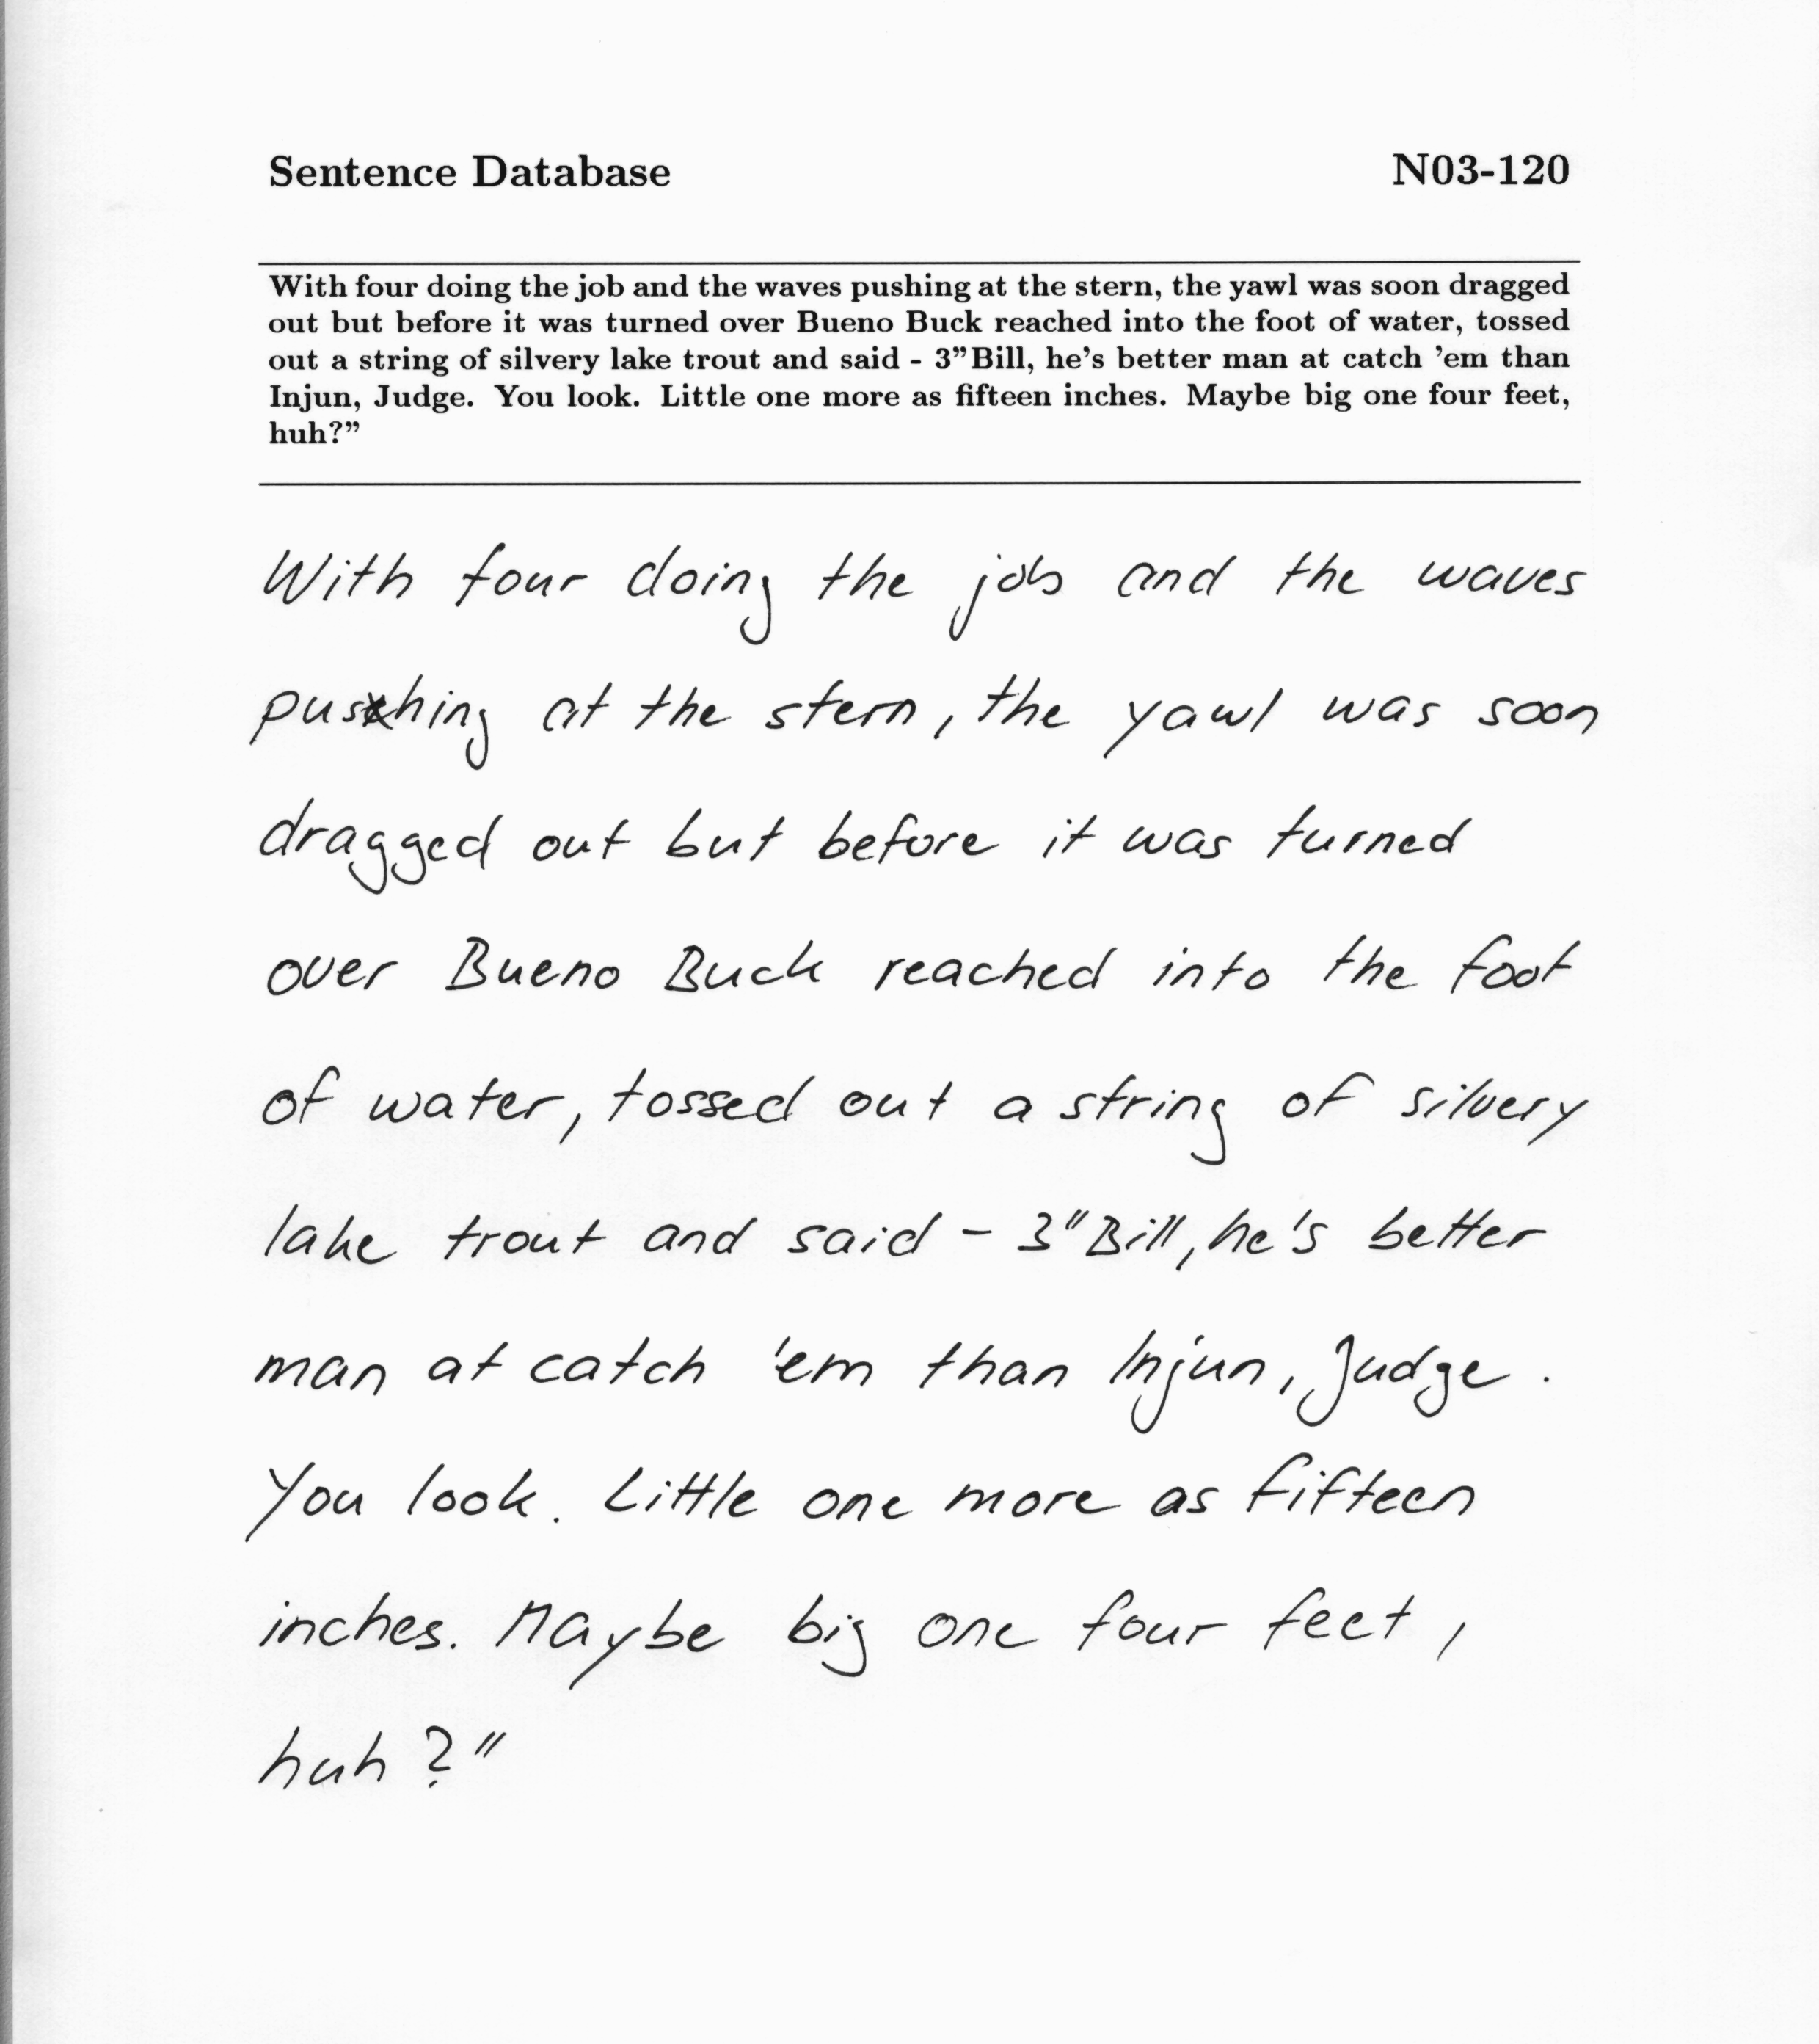 Sentence Database N03-120
With four doing the job and the waves pushing at the stern, the yawl was soon dragged
out but before it was turned over Bueno Buck reached into the foot of water, tossed
out a string of silvery lake trout and said - 3”Bill, he’s better man at catch ’em than
Injun, Judge. You look. Little one more as fifteen inches. Maybe big one four feet,
huh?”
With four doing the job and the waves
pushing at the stern, the yawl was soon
dragged out but before it was turned
over Bueno Buck reached into the foot
of water, tossed out a string of silvery
lake trout and said - 3"Bill, he's better
man at catch 'em than Injun, Judge.
You look. Little one more as fifteen
inches. Maybe big one four feet,
huh?"